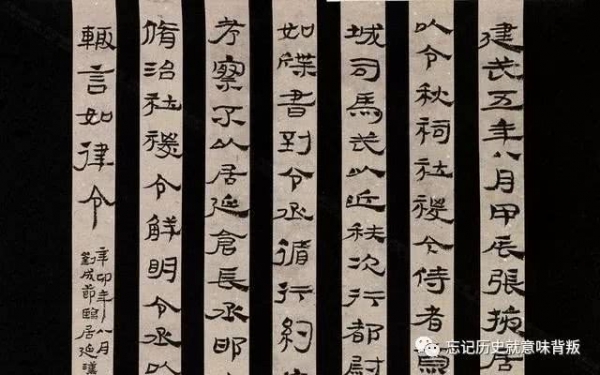 建武五年八月甲辰張掖居
以令秋祠社稷令侍者
城司馬武以近秩次行都尉
如牒書到令丞循行約
考察不以居延倉長丞邯
脩治社稷令鮮明令丞以
輒言如律令
辛卯年八月
劉成節臨居延漢
忘记历史就意味背叛